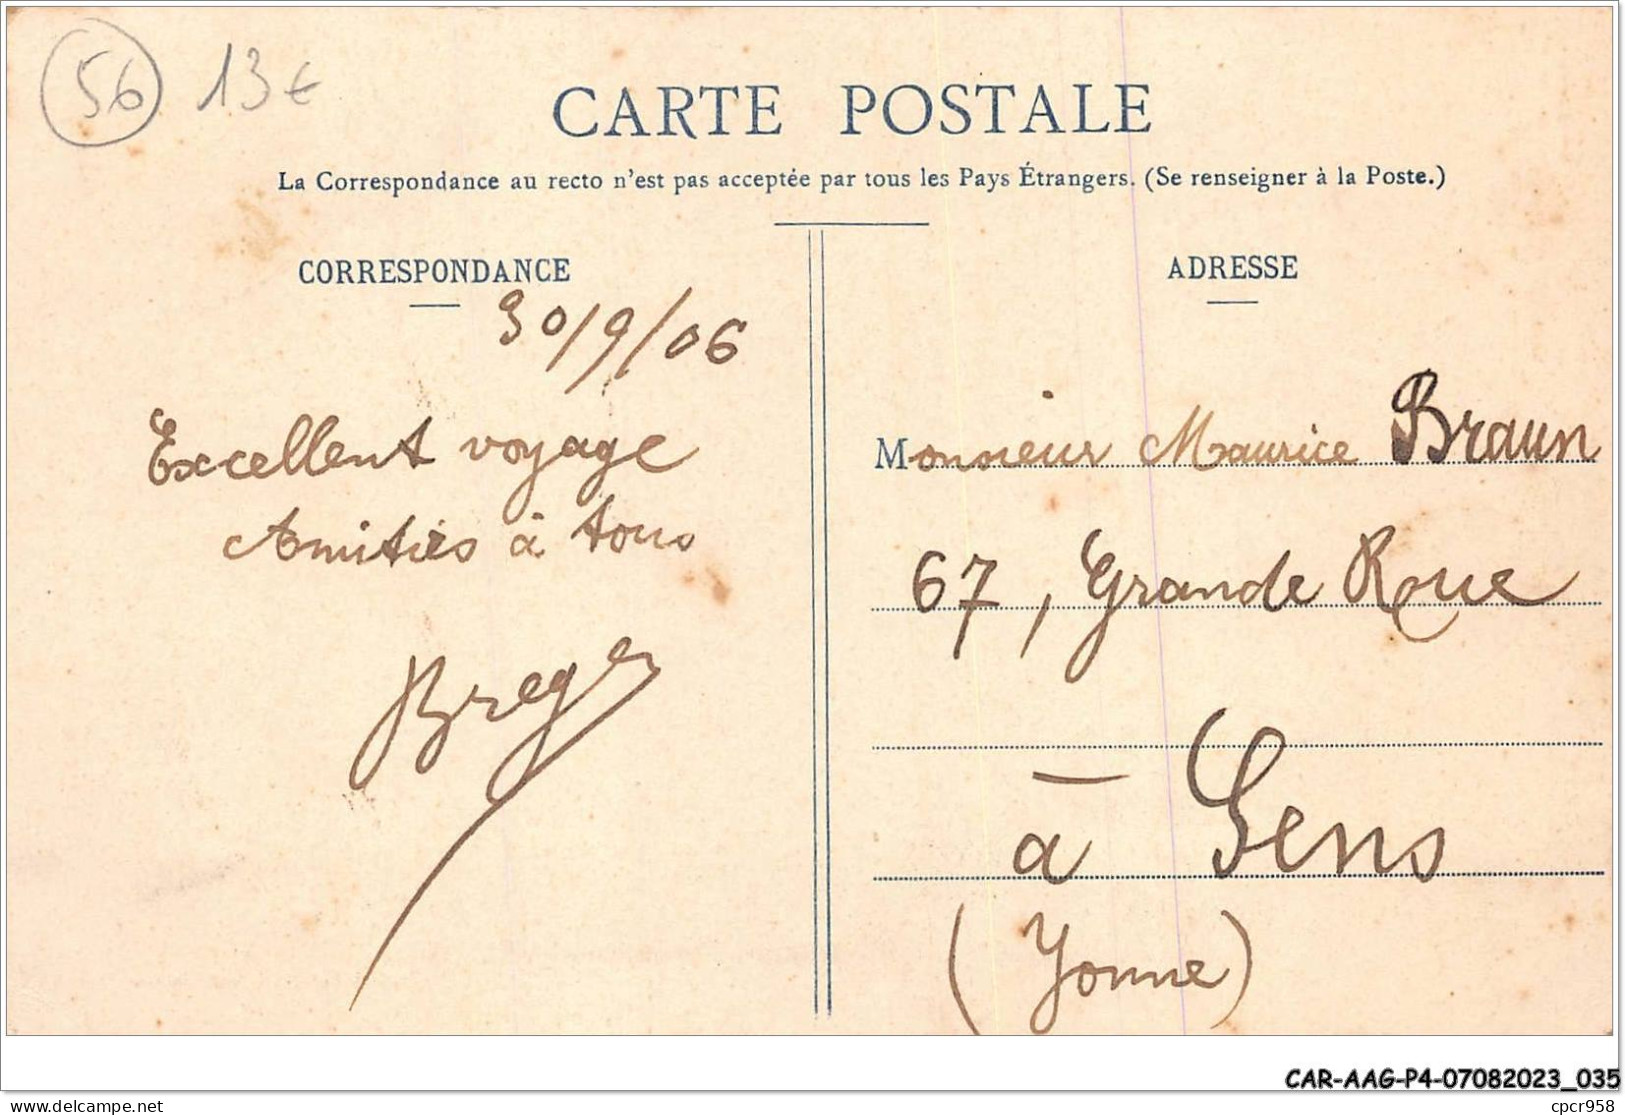 56 13€
CARTE POSTALE
La Correspondance au recto n'est pas acceptée par tous les Pays Étrangers. (Se renseigner à la Poste.)
CORRESPONDANCE
30/9/06
Excellent voyage
Amitiés à tous
ADRESSE
Monsieur Maurice Braun
67, Grande Rue
à Sens
(Yonne)
CAR-AAG-P4-07082023_035
delcampe.net
cpcr958